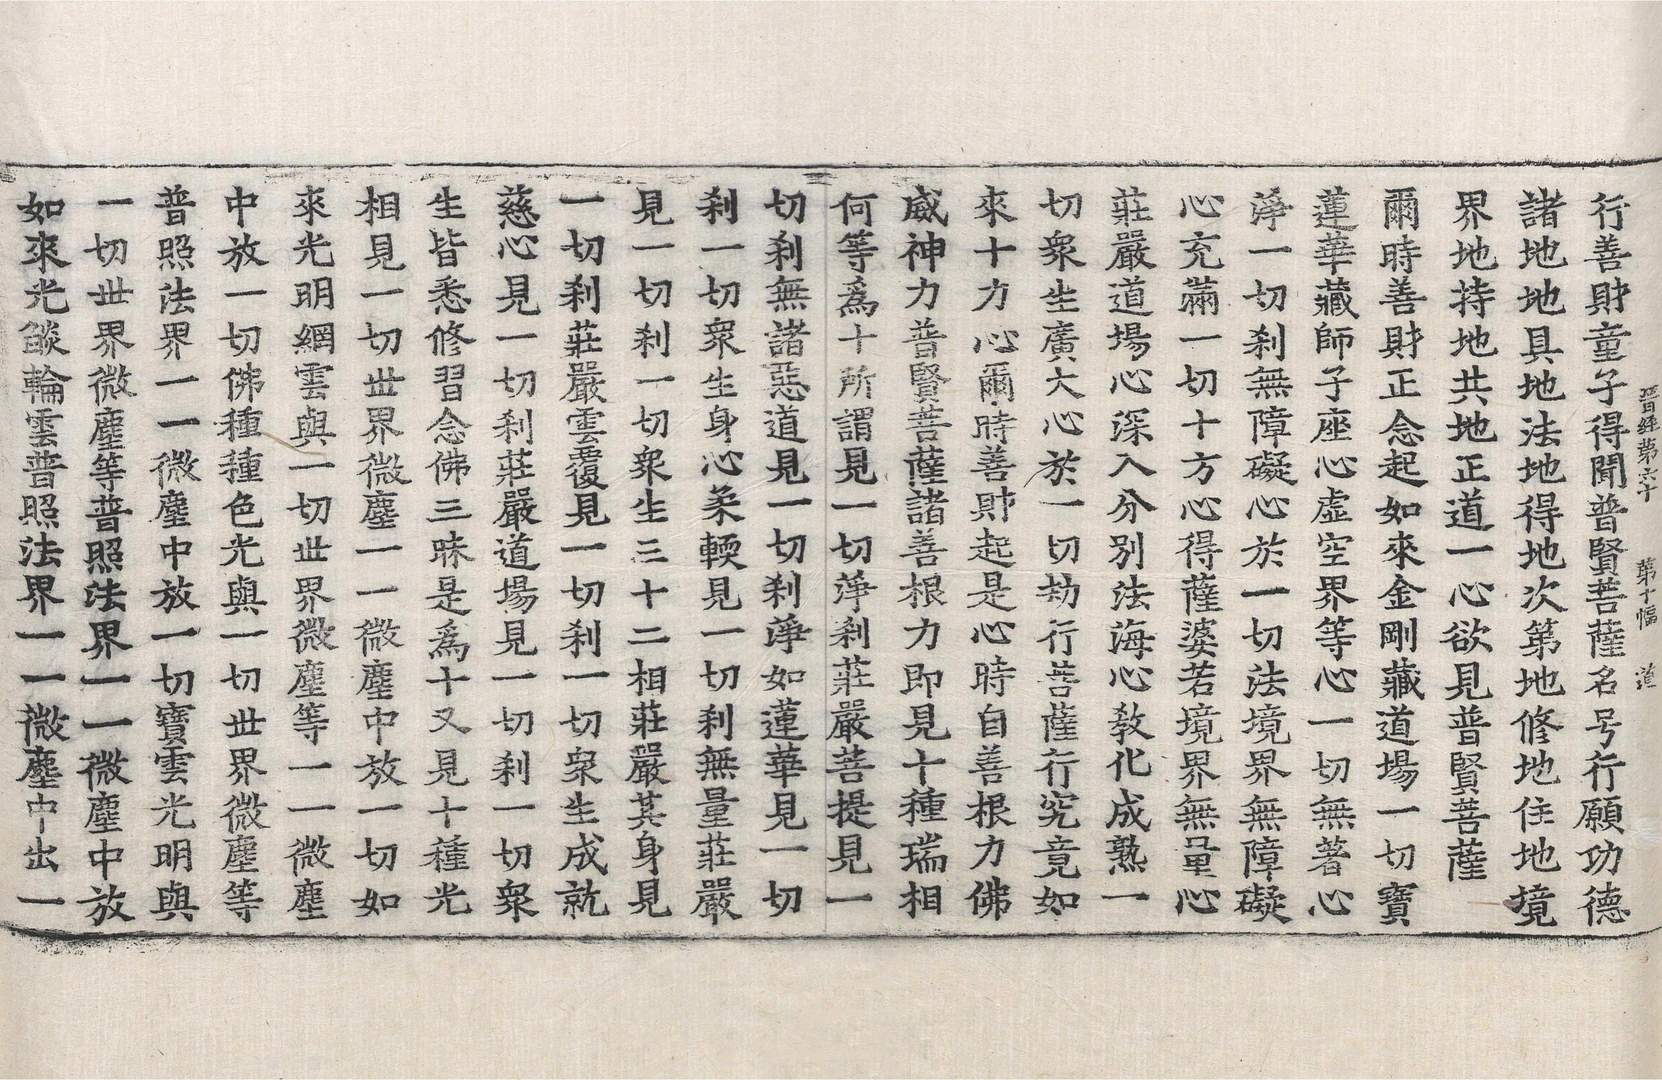 晋經第六十　第十幅　道
行善財童子得聞普賢菩薩名号行願功德
諸地地具地法地得地次第地修地住地境
界地持地共地正道一心欲見普賢菩薩
爾時善財正念起如來金剛藏道場一切寶
蓮華藏師子座心虛空界等心一切無著心
淨一切刹無障礙心於一切法境界無障礙
心充滿一切十方心得薩婆若境界無量心
莊嚴道場心深入分別法海心教化成熟一
切衆生廣大心於一切劫行菩薩行究竟如
來十力心爾時善財起是心時自善根力佛
威神力普賢菩薩諸善根力即見十種瑞相
何等爲十所謂見一切淨刹莊嚴菩提見一
切刹無諸惡道見一切刹淨如蓮華見一切
刹一切衆生身心柔輭見一切刹無量莊嚴
見一切刹一切衆生三十二相莊嚴其身見
一切刹莊嚴雲覆見一切刹一切衆生成就
慈心見一切刹莊嚴道場見一切刹一切衆
生皆悉修習念佛三昧是爲十又見十種光
相見一切世界微塵一一微塵中放一切如
來光明網雲與一切世界微塵等一一微塵
中放一切佛種種色光與一切世界微塵等
普照法界一一微塵中放一切寶雲光明與
一切世界微塵等普照法界一一微塵中放
如來光燄輪雲普照法界一一微塵中出一